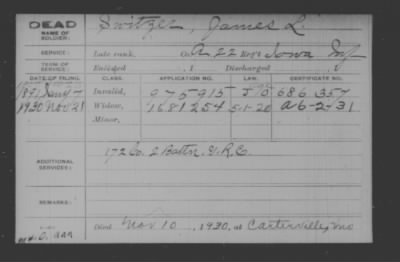 DEAD
NAME OF SOLDIER:
Switzer, James L.
SERVICE:
Late rank, Co. A, 22 Reg't Iowa Inf
TERM OF SERVICE:
Enlisted , 1 Discharged
DATE OF FILING. CLASS. APPLICATION NO. LAW. CERTIFICATE NO.
1891 Invalid, 975-915 686 357
1920 Nov 21 Widow, 1681254 5-1-20 a6-2-31
Minor,
ADDITIONAL SERVICES:
172 Co. 2 Battn. V.R.C.
REMARKS:
Died Nov. 10, 1920, at Carterville, Mo